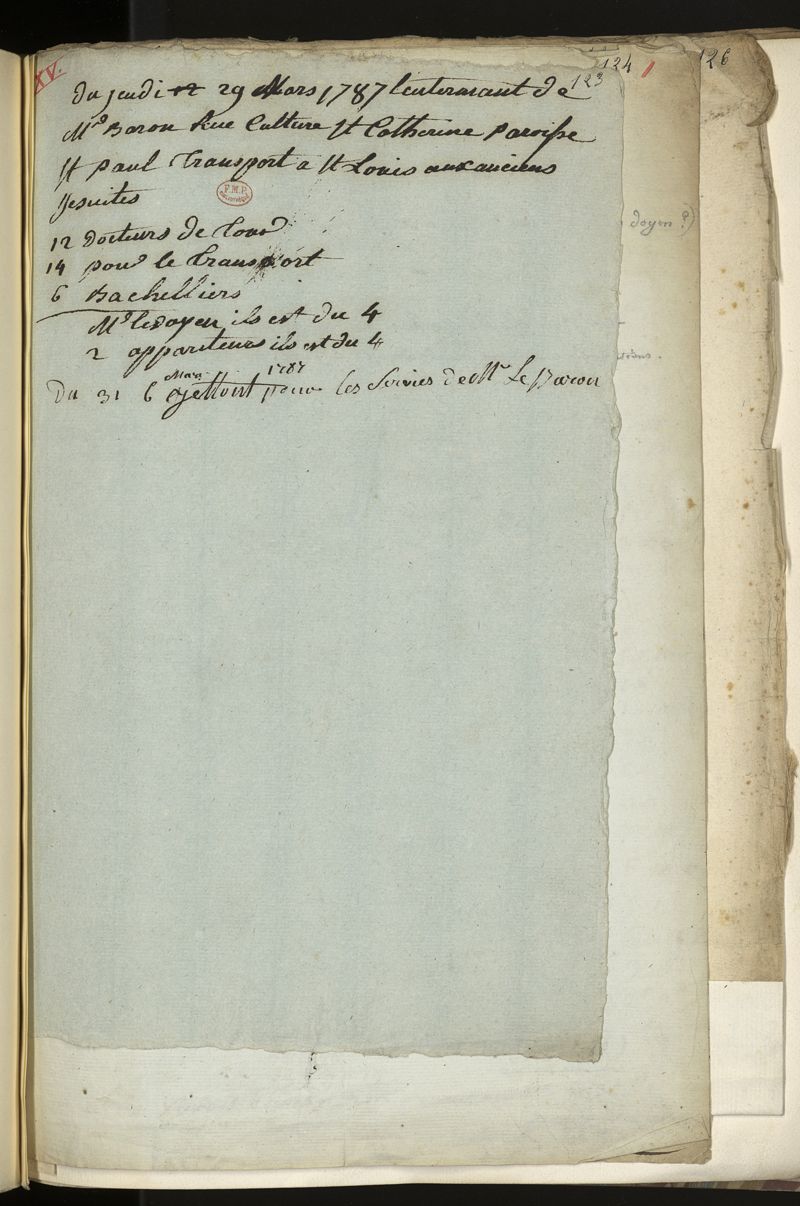 XV.
124 126
123
du jeudi 29 Mars 1787 lenterrement de
Mr Baron Rue Culture St Catherine paroisse
St paul Transport a St Louis aux anciens
Jesuites
F.M.P.
12 docteurs de
14 pour le Transport
6 Bachelliers
Mr le doyen ils est du 4
2 appariteurs ils est du 4
Mars 1787
Du 31 6 pour les de Mr Le Baron
doyen ?)